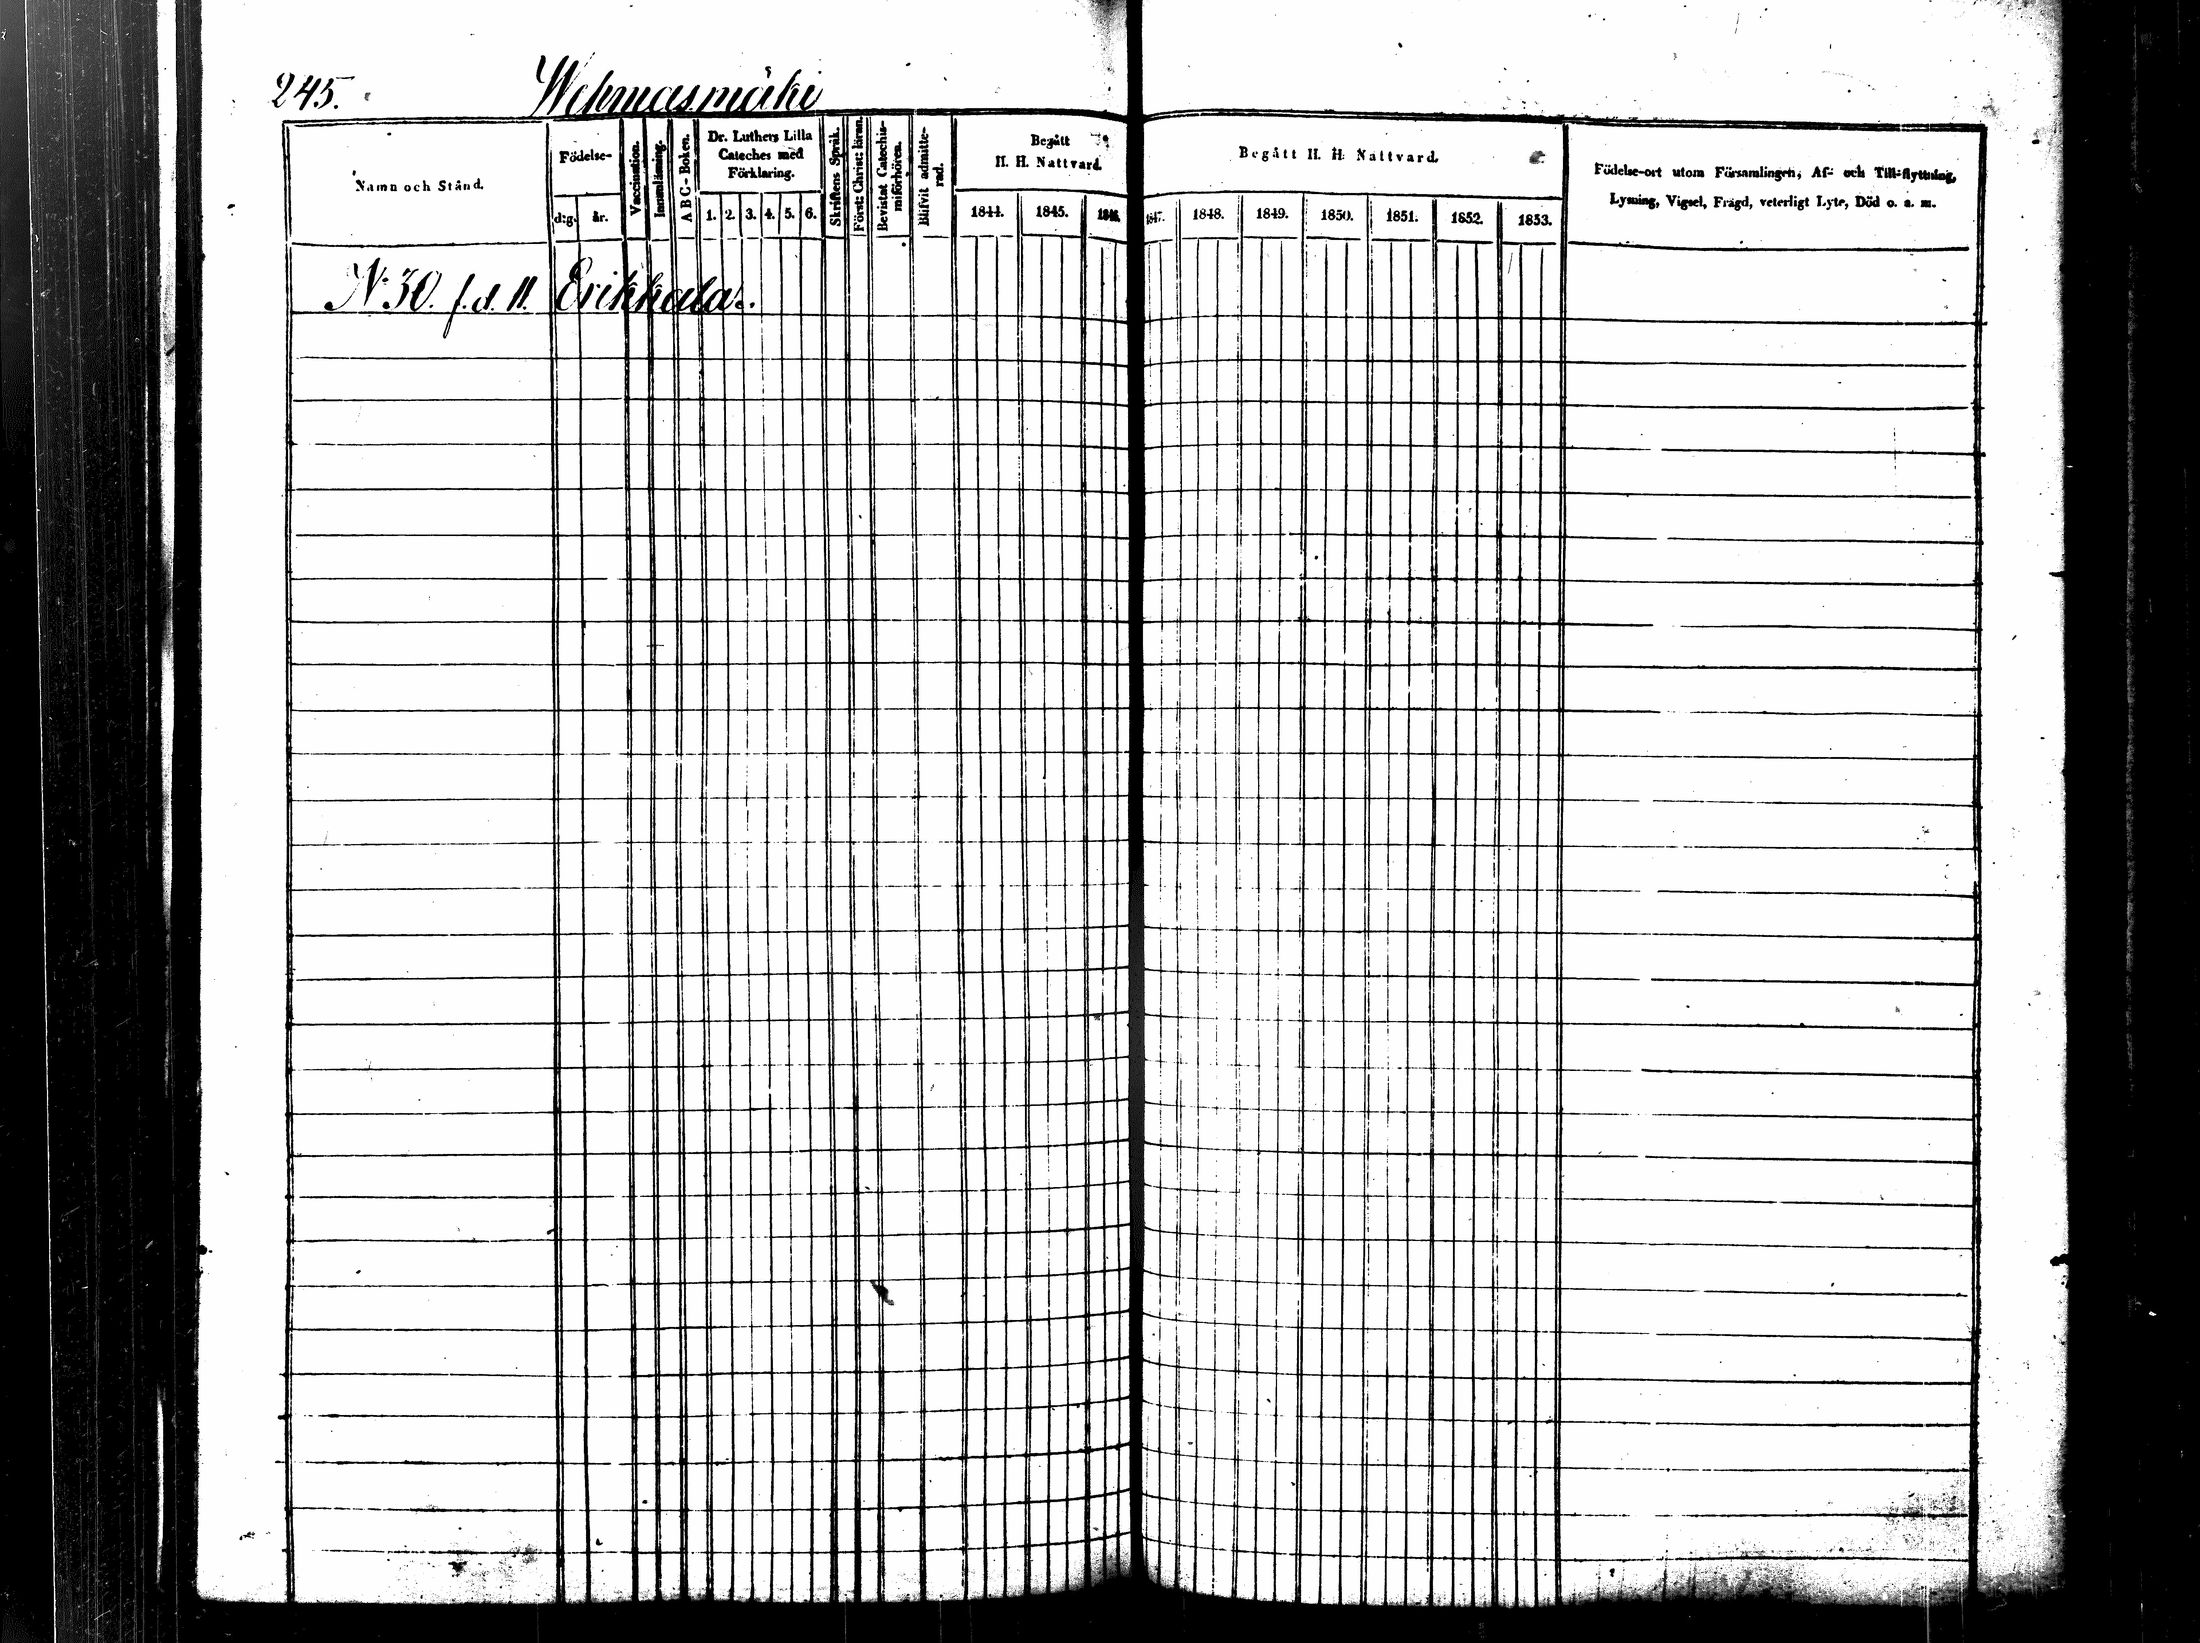 245.
Wehmasmäki
Namn och Stånd.
Födelse-
d:g.
år.
Vaccination.
Innanläsning.
A B C-Boken.
Dr. Luthers Lilla
Cateches med
Förklaring.
1. 2. 3. 4. 5. 6.
Skriftens Språk.
Först: Christ: läran.
Bevistat Catechis-
miförhören.
Blifvit admitte-
rad.
Begått
H. H. Nattvard.
1844. 1845. 1846.
Begått H. H. Nattvard.
1847. 1848. 1849. 1850. 1851. 1852. 1853.
Födelse-ort utom Församlingen, Af- och Till-flyttning,
Lysning, Vigsel, Frägd, veterligt Lyte, Död o. s. m.
N:30. f.d. 11. Erikkala.